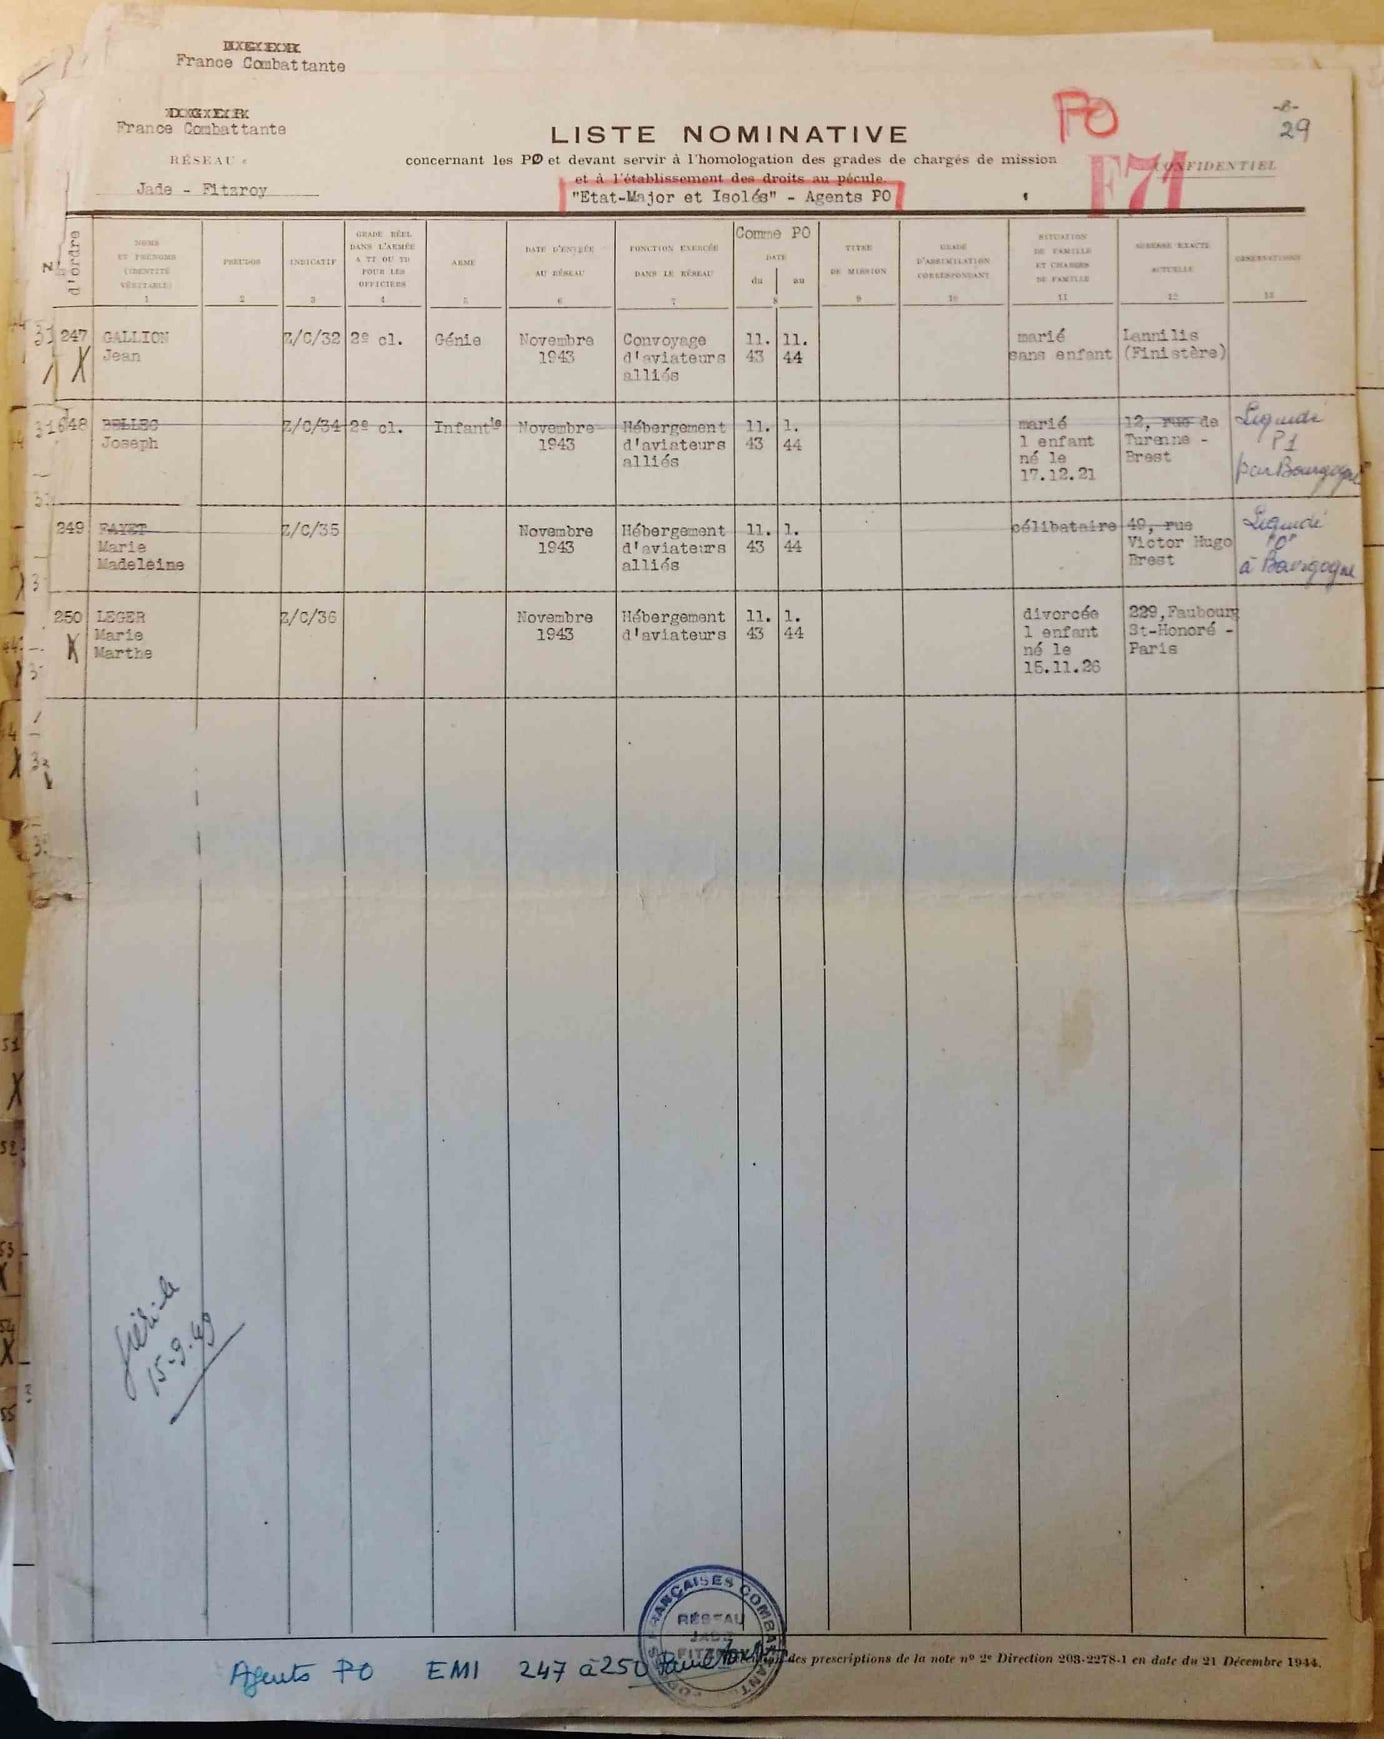 France Combattante
France Combattante
RÉSEAU
Jade - Fitzroy
LISTE NOMINATIVE
concernant les PØ et devant servir à l'homologation des grades de chargés de mission
et à l'établissement des droits au pécule.
"Etat-Major et Isolés" - Agents PO
PO
F71
CONFIDENTIEL
29
N° d'ordre
NOMS ET PRÉNOMS (IDENTITÉ VÉRITABLE) 1
PSEUDOS 2
INDICATIF 3
GRADE RÉEL DANS L'ARMÉE A TT OU TD POUR LES OFFICIERS 4
ARME 5
DATE D'ENTRÉE AU RÉSEAU 6
FONCTION EXERCÉE DANS LE RÉSEAU 7
Comme PO DATE du au 8
TITRE DE MISSION 9
GRADE D'ASSIMILATION CORRESPONDANT 10
SITUATION DE FAMILLE ET CHARGES DE FAMILLE 11
ADRESSE EXACTE ACTUELLE 12
OBSERVATIONS 13
247 GALLION Z/C/32 2º cl. Génie Novembre Convoyage 11. 11. marié Lannilis
Jean 1943 d'aviateurs 43 44 sans enfant (Finistère)
alliés
248 BELLEC Z/C/34 2º cl. Infantie Novembre Hébergement 11. 1. marié 12, rue de Liquidé
Joseph 1943 d'aviateurs 43 44 1 enfant Turenne - P1
alliés né le Brest par Bourgogne
17.12.21
249 FAYET Z/C/35 Novembre Hébergement 11. 1. célibataire 49, rue Liquidé
Marie 1943 d'aviateurs 43 44 Victor Hugo "O"
Madeleine alliés Brest à Bourgogne
250 LEGER Z/C/36 Novembre Hébergement 11. 1. divorcée 229, Faubourg
Marie 1943 d'aviateurs 43 44 1 enfant St-Honoré -
Marthe né le Paris
15.11.26
15-9-49
FRANÇAISES COMBATTANT
RÉSEAU
JADE
FITZROY
des prescriptions de la note nº 2ª Direction 203-2278-1 en date du 21 Décembre 1944.
Agents PO EMI 247 à 250